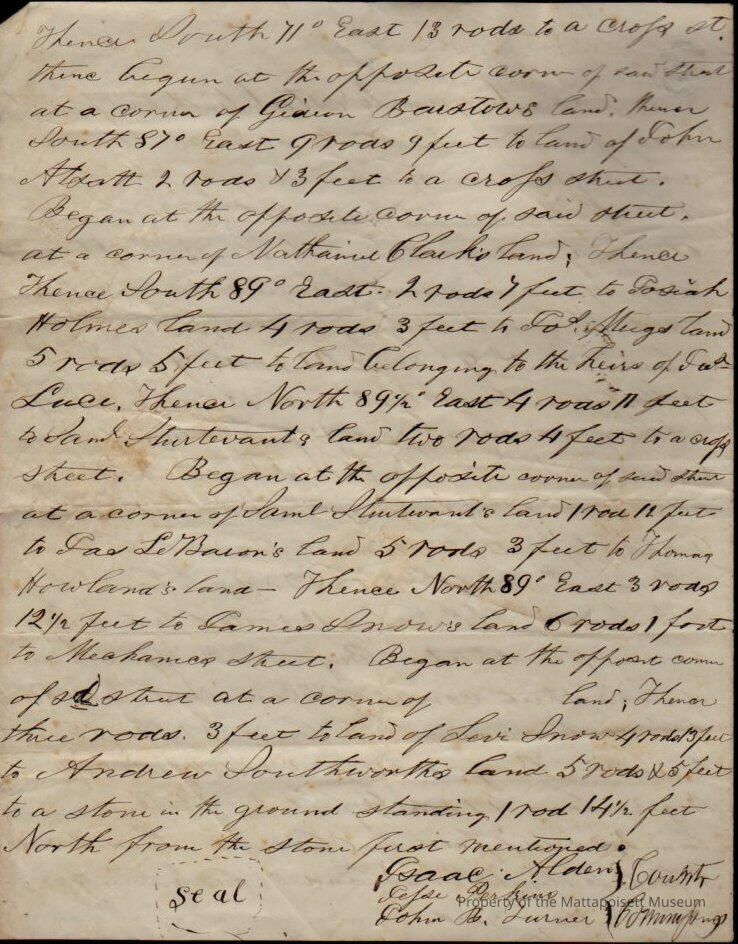 Thence South 71° East 13 rods to a cross st.
thence begun at the opposite corner of said street
at a corner of Gideon Barstows land. thence
South 87° East 9 rods 9 feet to land of John
2 rods & 3 feet to a cross street.
Began at the opposite corner of said street.
at a corner of Nathaniel Clark's land; Thence
Thence South 89° East. 2 rods 7 feet to Josiah
Holmes land 4 rods 3 feet to Jos. Meigs land
5 rods 5 feet to land belonging to the heirs of
Luce. Thence North 89½° East 4 rods 11 feet
to Saml Sturtevants land two rods 4 feet to a cross
street. Began at the opposite corner of said street
at a corner of Saml Sturtevant's land 1 rod 12 feet
to Jas LeBaron's land 5 rods 3 feet to Thomas
Howland's land — Thence North 89° East 3 rods
12½ feet to James Snow's land 6 rods 1 foot
to Mechanics street. Began at the opposit corner
of sd street at a corner of land; Thence
three rods. 3 feet to land of Levi Snow 4 rods 13 feet
to Andrew Southworths land 5 rods & 5 feet
to a stone in the ground standing 1 rod 14½ feet
North from the stone first mentioned.
Isaac Alden } County
seal
Jesse Perkins
John B. Turner }
Property of the Mattapoisett Museum